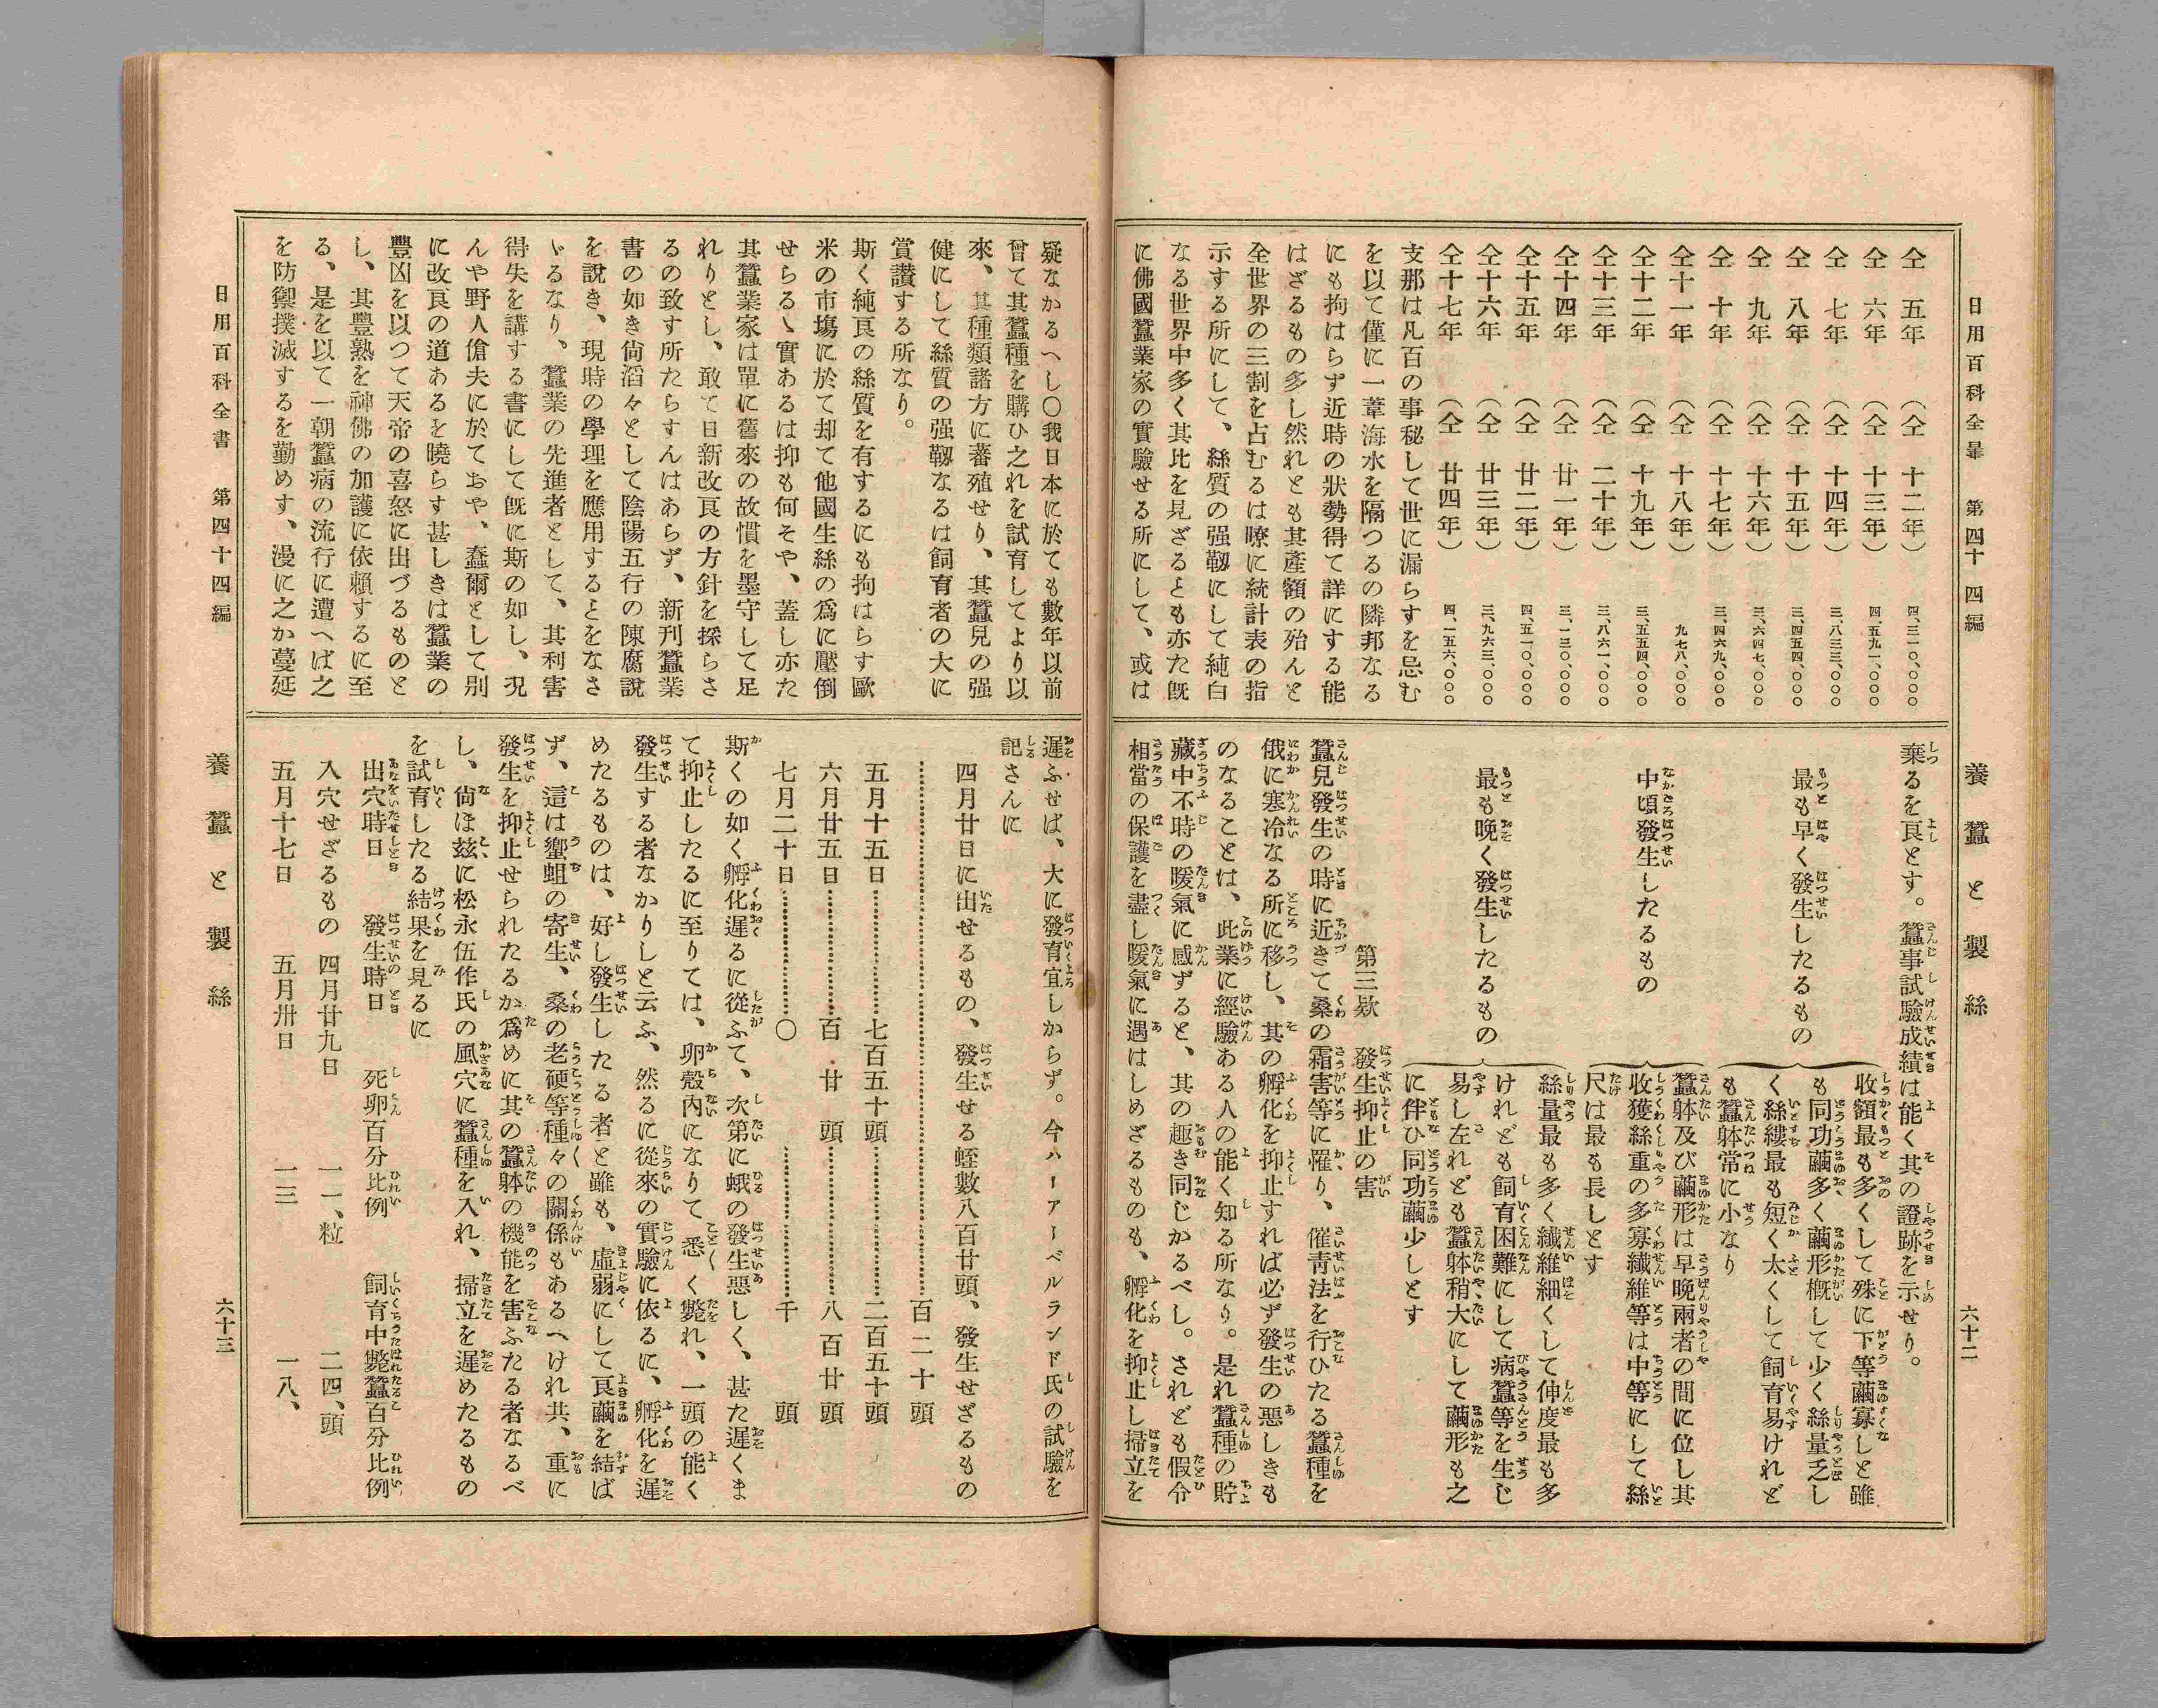 日用百科全書　第四十四編
養蠶と製絲
六十二
仝　五年　（仝　十二年）　四、三一〇、〇〇〇
仝　六年　（仝　十三年）　四、五九一、〇〇〇
仝　七年　（仝　十四年）　三、八三三、〇〇〇
仝　八年　（仝　十五年）　三、四五四、〇〇〇
仝　九年　（仝　十六年）　三、六四七、〇〇〇
仝　十年　（仝　十七年）　三、四六九、〇〇〇
仝十一年　（仝　十八年）　九七八、〇〇〇
仝十二年　（仝　十九年）　三、五五四、〇〇〇
仝十三年　（仝　二十年）　三、八六一、〇〇〇
仝十四年　（仝　廿一年）　三、一三〇、〇〇〇
仝十五年　（仝　廿二年）　四、五一〇、〇〇〇
仝十六年　（仝　廿三年）　三、九六三、〇〇〇
仝十七年　（仝　廿四年）　四、一五六、〇〇〇
支那は凡百の事秘して世に漏らすを忌む
を以て僅に一葦海水を隔つるの隣邦なる
にも拘はらず近時の狀勢得て詳にする能
はざるもの多し然れとも其產額の殆んと
全世界の三割を占むるは瞭に統計表の指
示する所にして、絲質の强靱にして純白
なる世界中多く其比を見ざるとも亦た既
に佛國蠶業家の實驗せる所にして、或は
棄るを良とす。蠶事試驗成績は能く其の證跡を示せり。
最も早く發生したるもの
收額最も多くして殊に下等繭寡しと雖
も同功繭多く繭形概して少く絲量乏し
く絲縷最も短く太くして飼育易けれど
も蠶躰常に小なり
中頃發生したるもの
蠶躰及び繭形は早晩兩者の間に位し其
收獲絲重の多寡纖維等は中等にして絲
尺は最も長しとす
最も晩く發生したるもの
絲量最も多く纖維細くして伸度最も多
けれども飼育困難にして病蠶等を生じ
易し左れども蠶躰稍大にして繭形も之
に伴ひ同功繭少しとす
第三欵　發生抑止の害
蠶兒發生の時に近きて桑の霜害等に罹り、催青法を行ひたる蠶種を
俄に寒冷なる所に移し、其の孵化を抑止すれば必ず發生の惡しきも
のなることは、此業に經驗ある人の能く知る所なり。是れ蠶種の貯
藏中不時の暖氣に感ずると、其の趣き同じかるべし。されども假令
相當の保護を盡し暖氣に遇はしめざるものも、孵化を抑止し掃立を
疑なかるへし〇我日本に於ても數年以前
曾て其蠶種を購ひ之れを試育してより以
來、其種類諸方に蕃殖せり、其蠶兒の强
健にして絲質の强靱なるは飼育者の大に
賞讚する所なり。
斯く純良の絲質を有するにも拘はらす歐
米の市塲に於て却て他國生絲の爲に壓倒
せらるゝ實あるは抑も何そや、蓋し亦た
其蠶業家は單に舊來の故慣を墨守して足
れりとし、敢て日新改良の方針を採らさ
るの致す所たらすんはあらず、新刊蠶業
書の如き尙滔々として陰陽五行の陳腐說
を說き、現時の學理を應用するとをなさ
ゞるなり、蠶業の先進者として、其利害
得失を講する書にして既に斯の如し、况
んや野人傖夫に於ておや、蠢爾として別
に改良の道あるを曉らす甚しきは蠶業の
豐凶を以つて天帝の喜怒に出づるものと
し、其豐熟を神佛の加護に依賴するに至
る、是を以て一朝蠶病の流行に遭へば之
を防禦撲滅するを勤めす、漫に之か蔓延
遲ふせば、大に發育宜しからず。今ハーアーベルランド氏の試驗を
記さんに
四月廿日に出せるもの、發生せる蛭數八百廿頭、發生せざるもの
……………………百二十頭
五月十五日…………七百五十頭…………二百五十頭
六月廿五日…………百廿頭…………八百廿頭
七月二十日…………〇…………千頭
斯くの如く孵化遲るに從ふて、次第に蛾の發生惡しく、甚た遲くま
て抑止したるに至りては、卵殼內になりて悉く斃れ、一頭の能く
發生する者なかりしと云ふ、然るに從來の實驗に依るに、孵化を遲
めたるものは、好し發生したる者と雖も、虛弱にして良繭を結ば
ず、這は蠁蛆の寄生、桑の老硬等種々の關係もあるへけれ共、重に
發生を抑止せられたるが爲めに其の蠶躰の機能を害ふたる者なるべ
し、尙ほ玆に松永伍作氏の風穴に蠶種を入れ、掃立を遲めたるもの
を試育したる結果を見るに
出穴時日　發生時日　死卵百分比例　飼育中斃蠶百分比例
入穴せざるもの　四月廿九日　一一、粒　二四、頭
五月十七日　五月卅日　一三　一八、
日用百科全書　第四十四編
養蠶と製絲
六十三